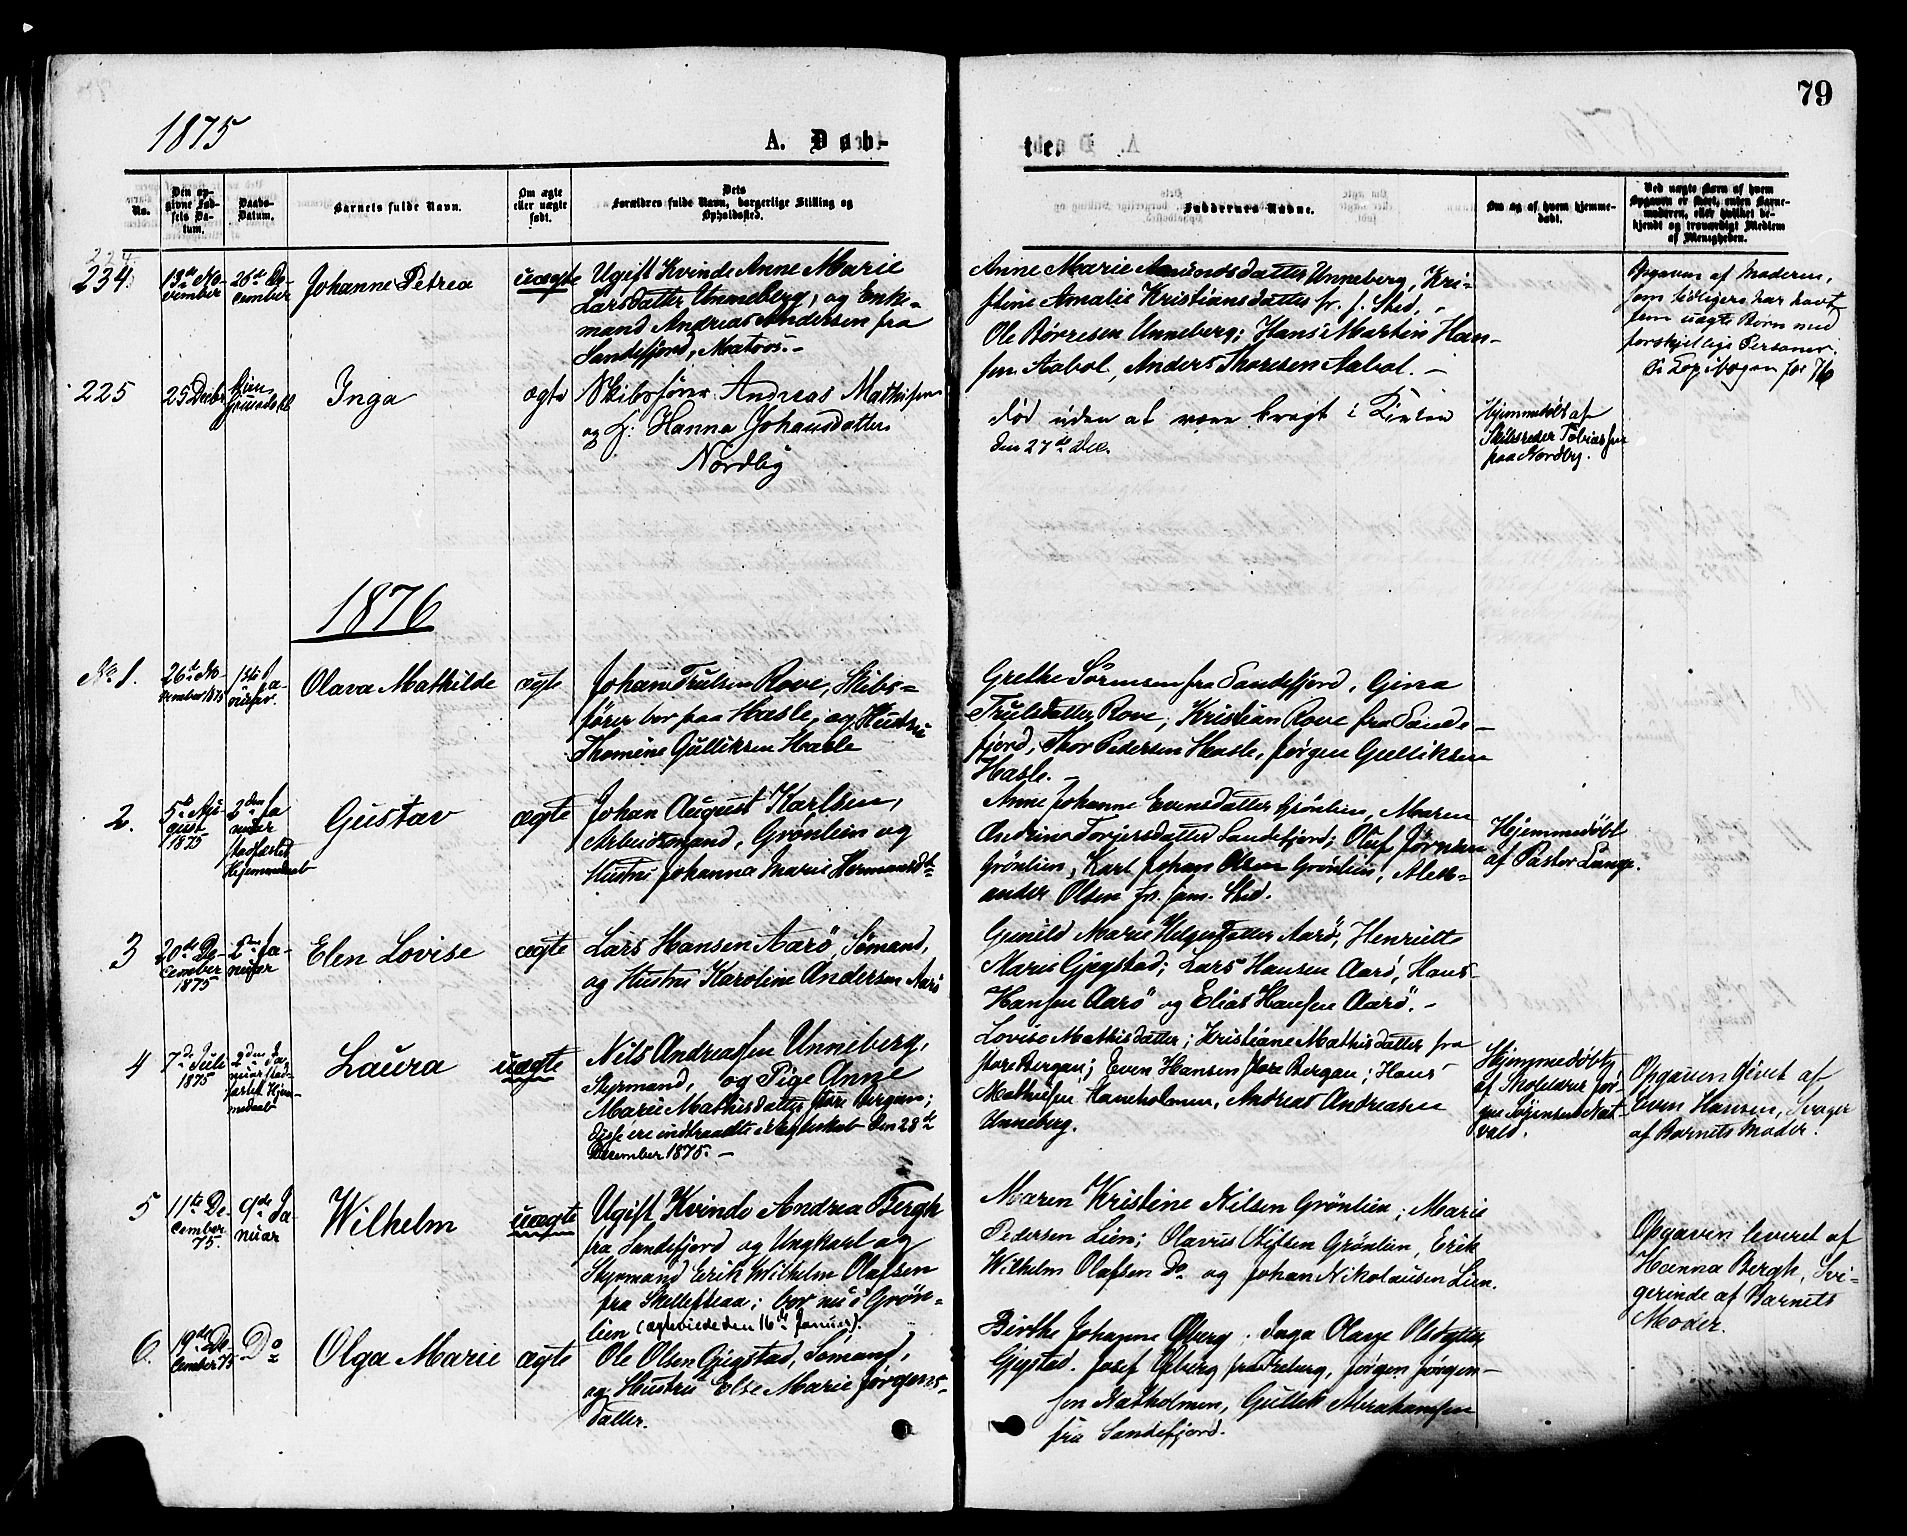 79
1875
A. Døb-
ter
No.
Den op-
givne Fød-
sels Da-
tum.
Daabs-
Datum.
Barnets fulde Navn.
Om ægte
eller uægte
født.
Dets
Forældres fulde Navn, borgerlige Stilling og
Opholdssted.
Faddernes Navne.
Om og af hvem hjemme-
døbt.
Ved uægte Børn af hvem
Opgaven er skeet, enten Barne-
moderen, eller hvilket be-
kjendt og troværdigt Medlem
af Menigheden.
224
234.
13de No-
vember
26de De-
cember
Johanne Petrea
uægte
Ugift Kvinde Anne Marie
Larsdatter Unneberg, og Enke-
mand Andreas Andersen fra
Sandefjord, Matros.-
Anne Marie Amundsdatter Unneberg, Kri-
stine Amalie Kristiansdatter fr. s. Sted,
Ole Børresen Unneberg; Hans Martin Han-
sen Aabol, Anders Thoresen Aabol. -
Opgaven af Moderen,
som tidligere har havt
fem uægte Børn med
forskjellige Personer.
225
25 Decbr
Inga
ægte
Skibsfører Andreas Mathisen
og H: Hanna Johansdatter
Nordby
død uden at være bragt i Kirken
den 27de Dec.
Hjemmedøbt af
Skibsreder Tobiassen
paa Nordby.
1876
No 1.
26de No-
vember 1875
1ste Ja-
nuar.
Olava Mathilde
ægte
Johan Trulsen Rove, Skibs-
fører bor paa Hasle, og Hustru
Thomine Gulliksen Hasle
Grethe Sörensen fra Sandefjord, Gina
Trulsdatter Rove, Kristian Rove fra Sande-
fjord, Thor Pedersen Hasle, Jørgen Gulliksen
Hasle. -
2.
5te Au-
gust
1875
2den Ja
nuar
stadfæsted
Hjemmedaab
Gustav
ægte
Johan August Karlsen,
Arbeidsmand, Grønlien og
Hustru Johanna Marie Hermansdtr
Anne Johanne Evensdatter Grönlien, Maren
Andrine Torjersdatter Sandefjord; Oluf Jörnsen
Grönlien, Karl Johan Olsen Grönlien, Alex-
ander Olsen fr. sam. Sted.
Hjemmedöbt
af Pastor Lange.
3
20de De-
cember
1875
2den Ja-
nuar
Elen Lovise
ægte
Lars Hansen Aarö, Sömand,
og Hustru Karoline Andersen Aarö
Gunild Marie Helgesdatter Aarö, Henriette
Marie Gjegstad; Lars Hansen Aarö, Hans
Hansen Aarö og Elias Hansen Aarö. -
4
7de Juli
1875
2den Ja-
nuar stad-
fæstet Hjem-
medaab
Laura
uægte
Nils Andreassen Unneberg,
Styrmand, og Pige Anne
Marie Mathisdatter store Bergan;
disse ere indtraadte i Ægteskab den 28de
December 1875. -
Lovise Mathisdatter; Kristiane Mathisdatter fra
store Bergan; Even Hansen store Bergan; Hans
Mathisen Haneholmen, Andreas Andreasen
Unneberg.
Hjemmedöbt
af Skolelærer Jør-
gen Jörgensen Nat-
vald.
Opgaven givet af
Even Hansen, Svoger
af Barnets Moder.
5
11te De-
cember
75.
9de Ja-
nuar
Wilhelm
uægte
Ugift Kvinde Andrea Bergh
fra Sandefjord og Ungkarl og
Styrmand Erik Wilhelm Olafsen
fra Skellefteaa; bor nu i Grön-
lien (ægteviede den 16de Januar).
Maren Kristine Nilsen Grönlien; Marie
Pedersen Lien; Olavus Nilsen Grönlien, Erik
Wilhelm Olafsen Do og Johan Nikolausen Lien.
Opgaven leveret af
Hanna Bergh, Svi-
gerinde af Barnets
Moder.
6.
19de De-
cember 75
Do
Olga Marie
ægte
Ole Olsen Gjegstad, Sømand,
og Hustru Else Marie Jørgens-
datter.
Birthe Johanne Öberg. Inga Olava Olsdatter
Gjegstad. Josef Öberg fra Freberg, Jørgen Jørgen-
sen Natholmen, Gullek Abrahamsen
fra Sandefjord.